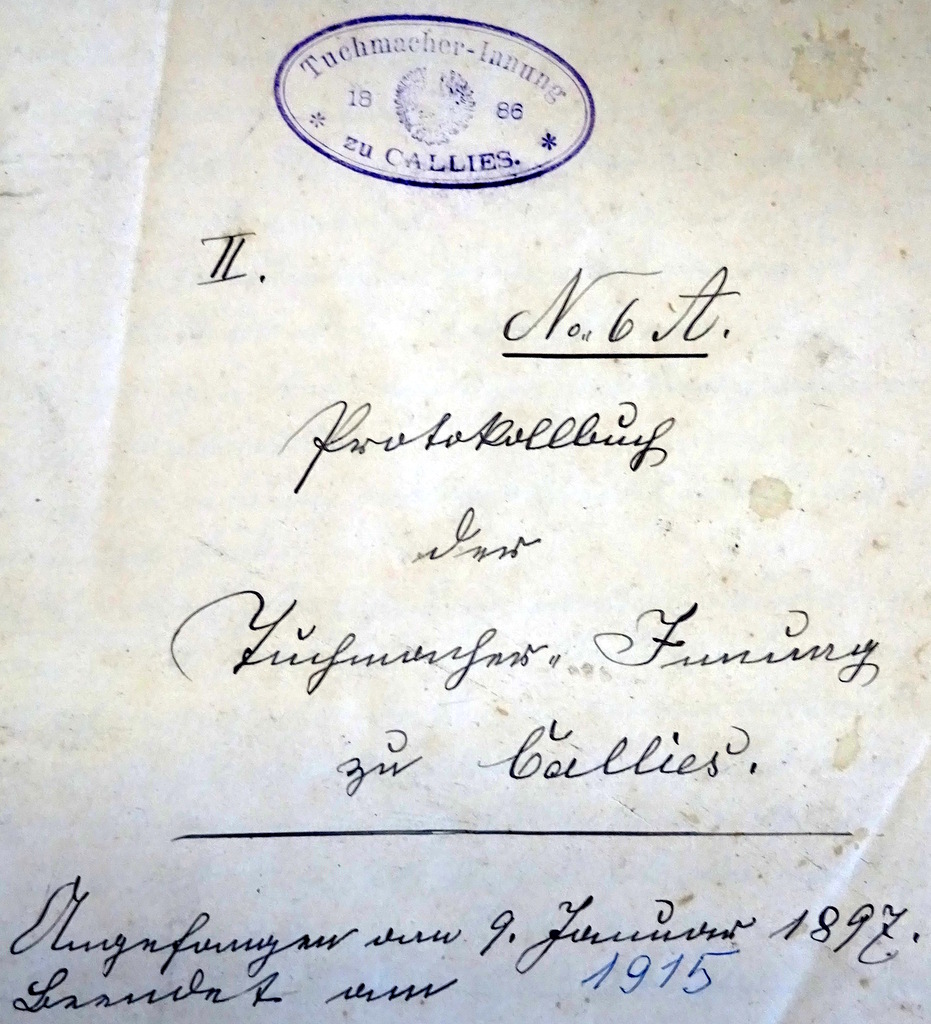 Tuchmacher-Innung
18 86
* zu CALLIES. *
II.
No. 6 A.
Protokollbuch
der
Tuchmacher-Innung
zu Callies.
Angefangen am 9. Januar 1897.
Beendet am 1915